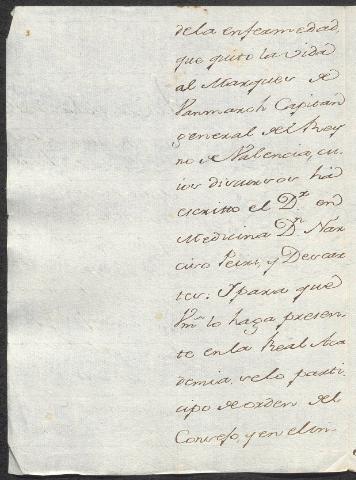 dela enfermedad,
que quito la vida
al Marques de
Vanmarch Capitan
general del Rey
no de Valencia, cu
ios discursos ha
escrito el Dr. en
Medicina Dn. Nar
ciso Peix, y Descar
tes: Y para que
Vm. lo haga presen
te en la Real Aca
demia, se lo parti
cipo de orden del
Consejo, y en el in